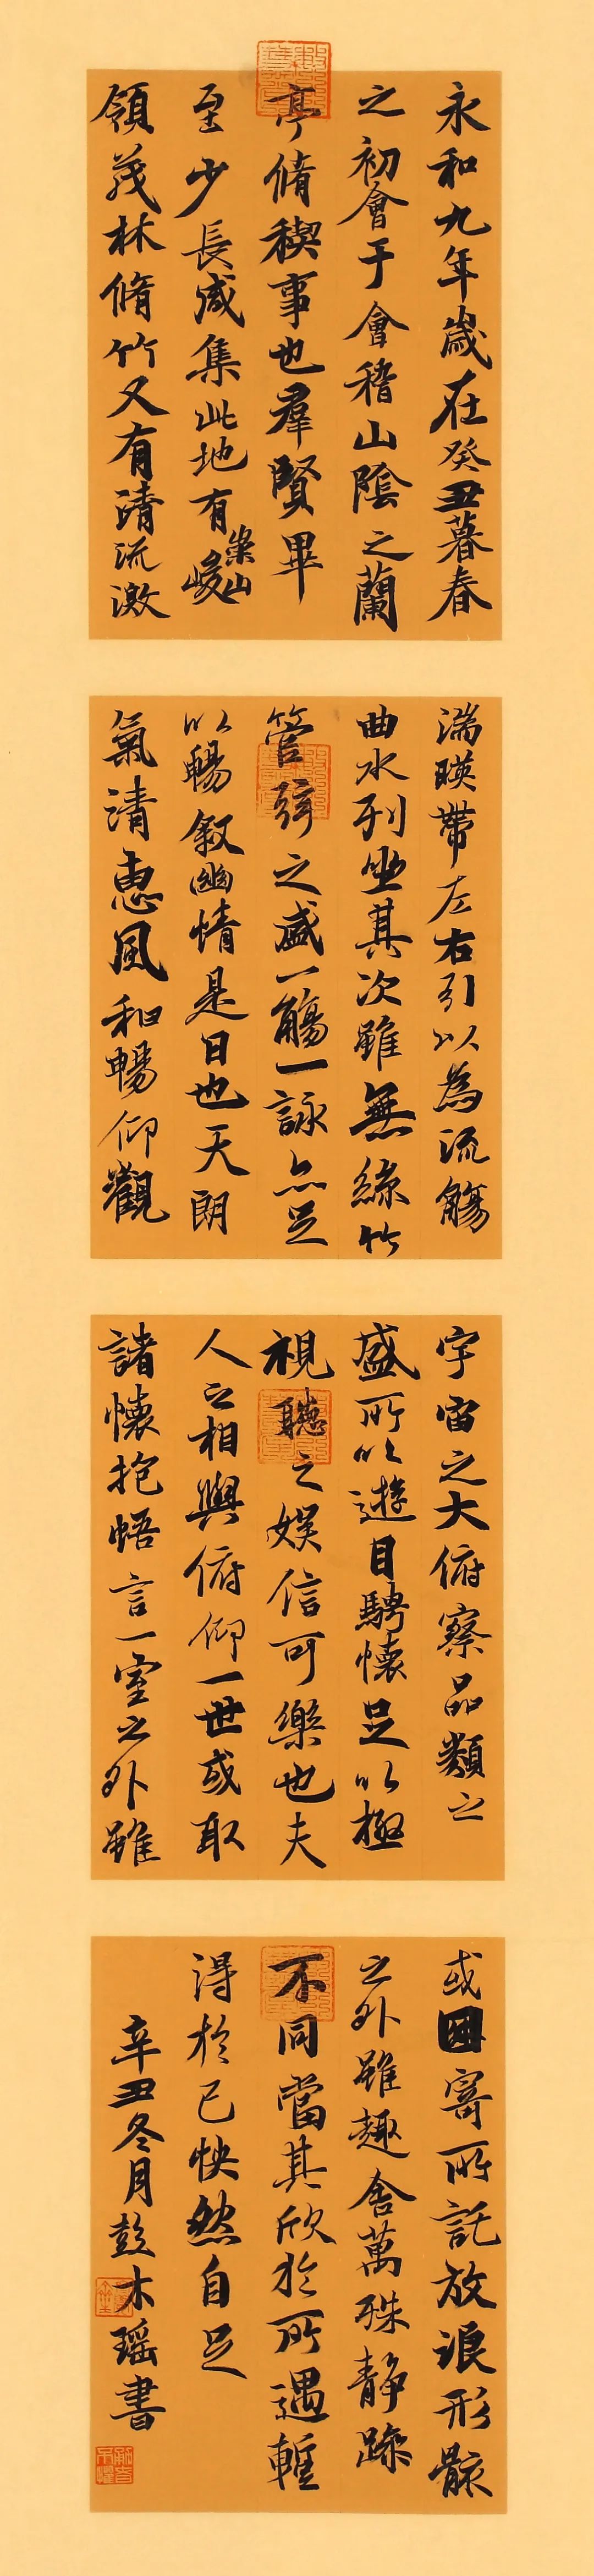 永和九年歲在癸丑暮春
之初會于會稽山陰之蘭
亭脩稧事也羣賢畢
至少長咸集此地有崇山峻
領茂林脩竹又有清流激
湍暎帶左右引以為流觴
曲水列坐其次雖無絲竹
管弦之盛一觴一詠亦足
以暢叙幽情是日也天朗
氣清惠風和暢仰觀
宇宙之大俯察品類之
盛所以遊目騁懷足以極
視聽之娛信可樂也夫
人之相與俯仰一世或取
諸懷抱悟言一室之外雖
或因寄所託放浪形骸
之外雖趣舍萬殊静躁
不同當其欣於所遇蹔
得於己怏然自足
辛丑冬月彭木瑶書